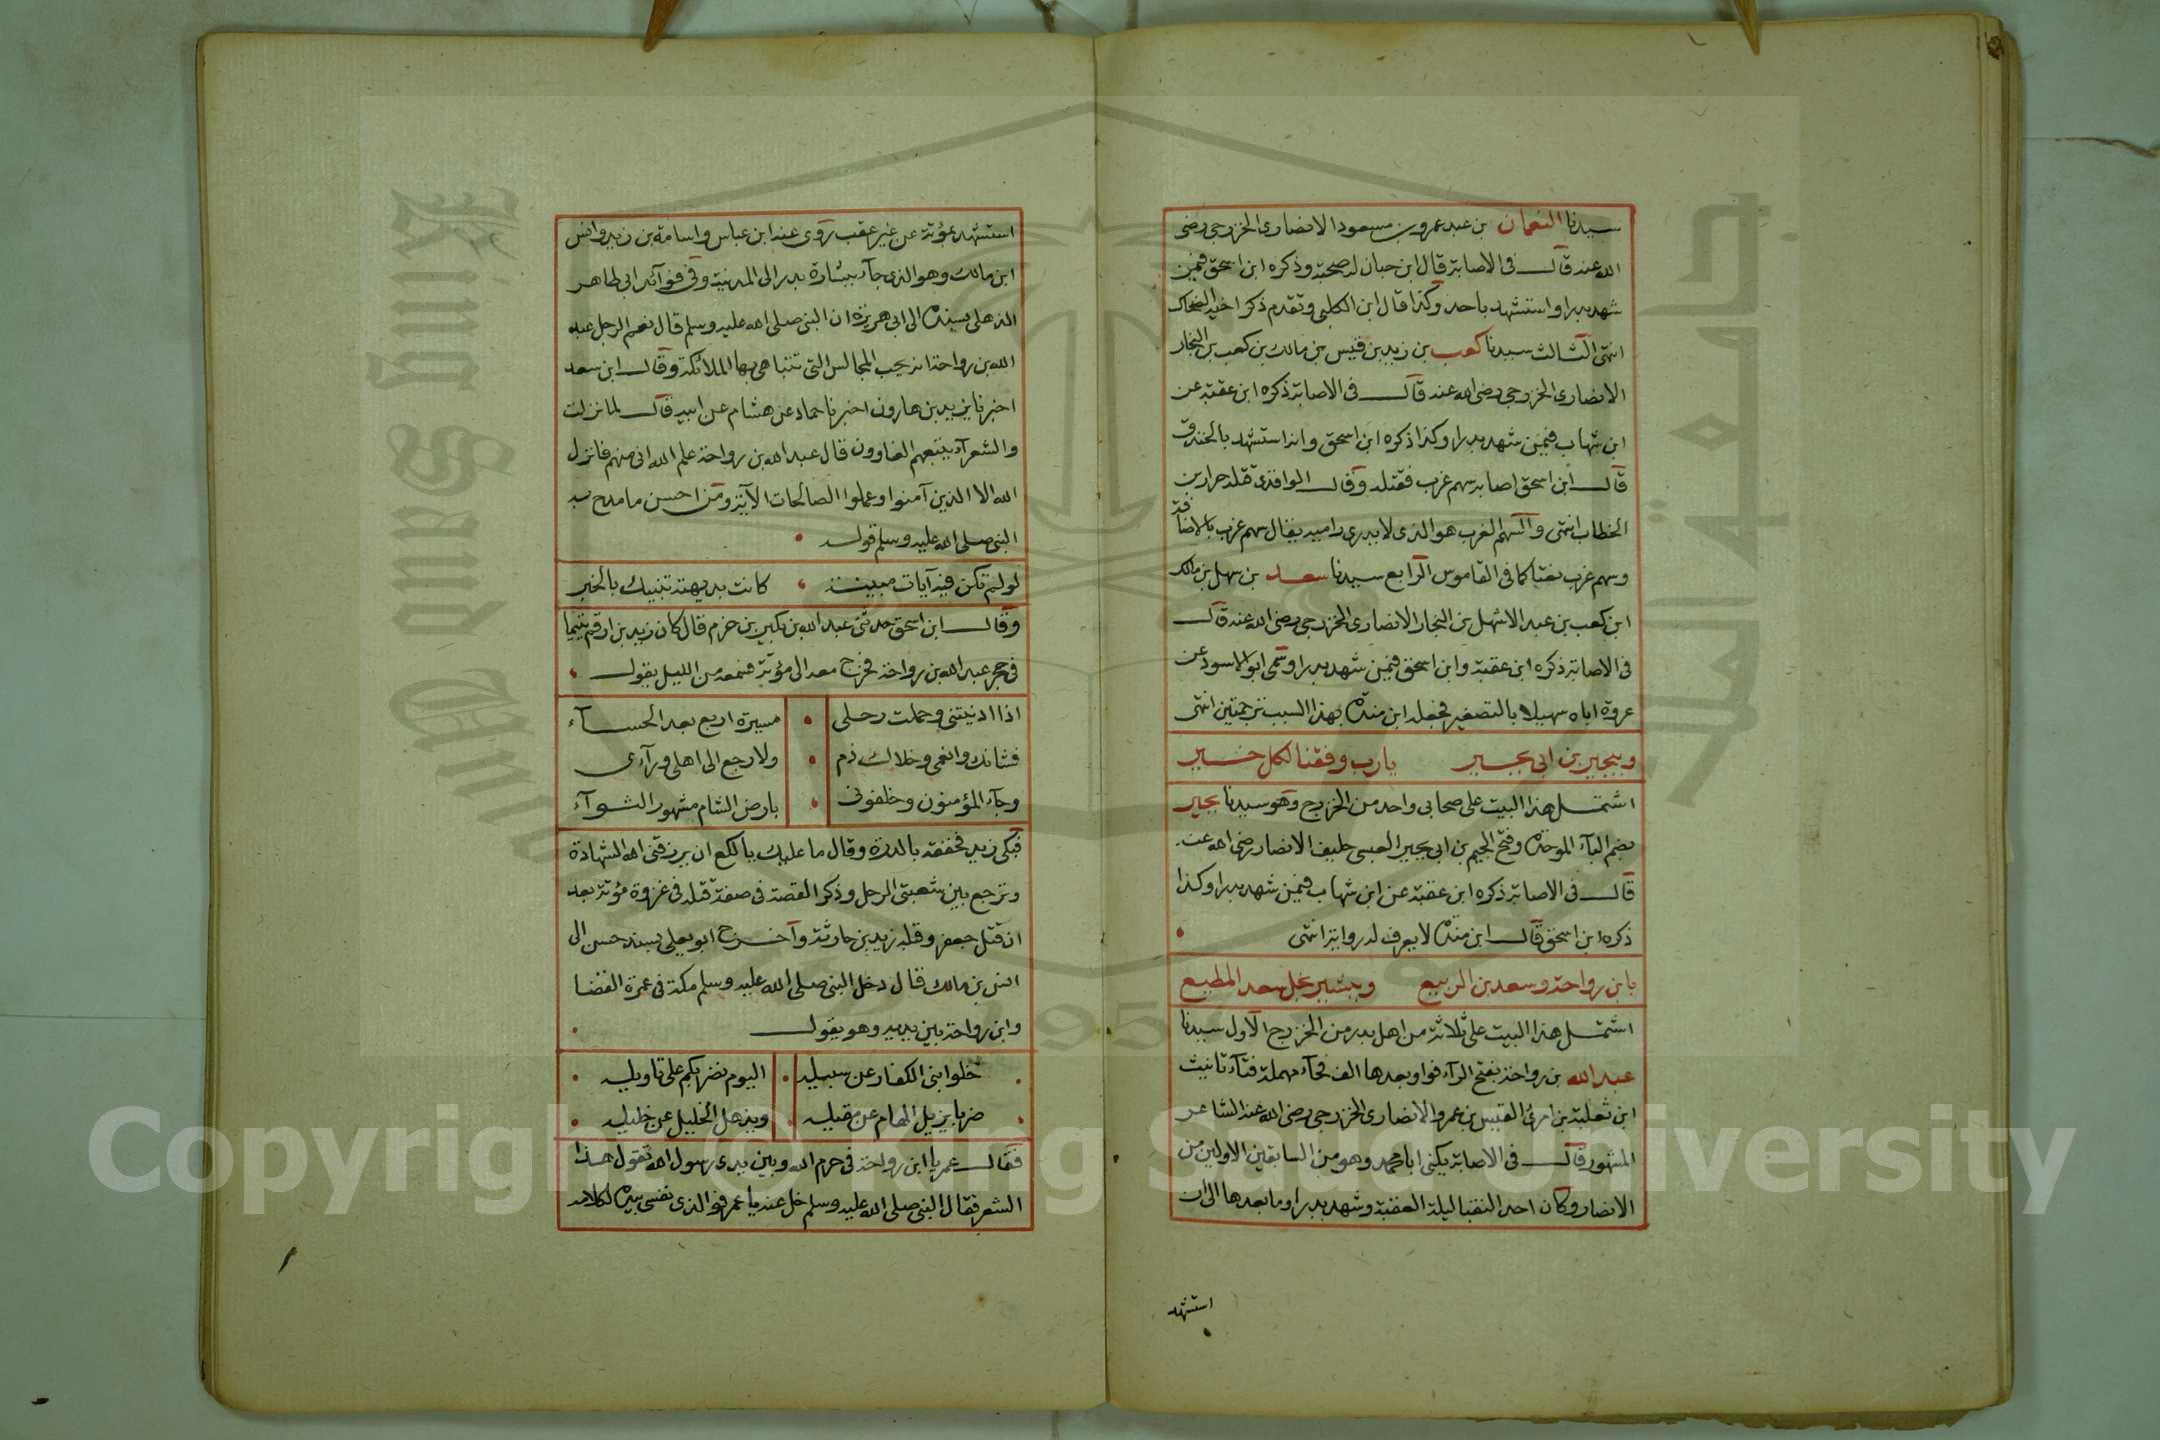 سيدنا النعمان بن عبد عمرو بن مسعود الانصارى الخزرجى رضى
الله عنه قال فى الاصابة قال ابن حبان له صحبة وذكره ابن اسحق فيمن
شهد بدرا واستشهد باحد وكذا قال ابن الكلبى وتقدم ذكر اخيه الضحاك
انتهى الثالث سيدنا كعب بن زيد بن قيس بن مالك بن كعب بن النجار
الانصارى الخزرجى رضى الله عنه قال فى الاصابة ذكره ابن عقبة عن
ابن شهاب فيمن شهد بدرا وكذا ذكره ابن اسحق وانه استشهد بالخندق
قال ابن اسحق اصابه سهم غرب فقتله وقال الواقدى قتله ضرار بن
الخطاب انتهى والسهم الغرب هو الذى لا يدرى راميه يقال سهم غرب بالاضافة
وسهم غرب نعتا كما فى القاموس الرابع سيدنا سعد بن سهل بن مالك
ابن كعب بن عبد الاشهل بن النجار الانصارى الخزرجى رضى الله عنه قال
فى الاصابة ذكره ابن عقبة وابن اسحق فيمن شهد بدرا وسمى ابو الاسود عن
عروة اباه سهيلا بالتصغير فجعله ابن منده بهذا السبب ترجمتين انتهى
وببجير بن ابى بجير يارب وفقنا لكل خير
اشتمل هذا البيت على صحابى واحد من الخزرج وهو سيدنا بجير
بضم الباء الموحدة وفتح الجيم بن ابى بجير العبسى حليف الانصار رضى الله عنه
قال فى الاصابة ذكره ابن عقبة عن ابن شهاب فيمن شهد بدرا وكذا
ذكره ابن اسحق قال ابن منده لا يعرف له رواية انتهى
بابن رواحة وسعد بن الربيع وببشير نجل سعد المطيع
اشتمل هذا البيت على ثلاثة من اهل بدر من الخزرج الاول سيدنا
عبد الله بن رواحة بفتح الراء فواو بعدها الف فحاء مهملة فتاء تانيث
ابن ثعلبة بن امرئ القيس بن عمرو الانصارى الخزرجى رضى الله عنه الشاعر
المشهور قال فى الاصابة يكنى ابا محمد وهو من السابقين الاولين من
الانصار وكان احد النقبا ليلة العقبة وشهد بدرا وما بعدها الى ان
استشهد
استشهد بمؤتة عن غير عقب روى عنه ابن عباس واسامة بن زيد وانس
ابن مالك وهو الذى جاء ببشارة بدر الى المدينة وفى فوائد ابى طاهر
الذهلى بسنده الى ابى هريرة ان النبى صلى الله عليه وسلم قال نعم الرجل عبد
الله بن رواحة انه يحب المجالس التى تتباهى بها الملائكة وقال ابن سعد
اخبرنا يزيد بن هارون اخبرنا حماد عن هشام عن ابيه قال لما نزلت
والشعراء يتبعهم الغاوون قال عبد الله بن رواحة علم الله انى منهم فانزل
الله الا الذين آمنوا وعملوا الصالحات الآية ومن احسن ما مدح به
النبى صلى الله عليه وسلم قوله
لو لم تكن فيه آيات مبينة كانت بديهته تنبيك بالخير
وقال ابن اسحق حدثنى عبد الله بن بكير بن حزم قال كان زيد بن ارقم يتيما
فى حجر عبد الله بن رواحة فخرج معه الى مؤتة فسمعه من الليل يقول
اذا ادنيتنى وحملت رحلى مسيرة اربع بعد الحساء
فشانك وانعمى وخلاك ذم ولا ارجع الى اهلى ورآءى
وجاء المؤمنون وخلفونى بارض الشام مشهور الثواء
فبكى زيد فخفقه بالدرة وقال ما عليك يا لكع ان يرزقنى الله الشهادة
وترجع بين شعبتى الرحل وذكر القصة فى صفة قتله فى غزوة مؤتة بعد
ان قتل جعفر وقبله زيد بن حارثة وآخرج ابو يعلى بسند حسن الى
انس بن مالك قال دخل النبى صلى الله عليه وسلم مكة فى عمرة القضا
وابن رواحة بين يديه وهو يقول
خلوا بنى الكفار عن سبيله اليوم نضربكم على تاويله
ضربا يزيل الهام عن مقيله ويذهل الخليل عن خليله
فقال عمر يا ابن رواحة فى حرم الله وبين يدى رسول الله تقول هذا
الشعر فقال النبى صلى الله عليه وسلم خل عنه يا عمر فوالذى نفسى بيده لكلامه
Copyright © King Saud University